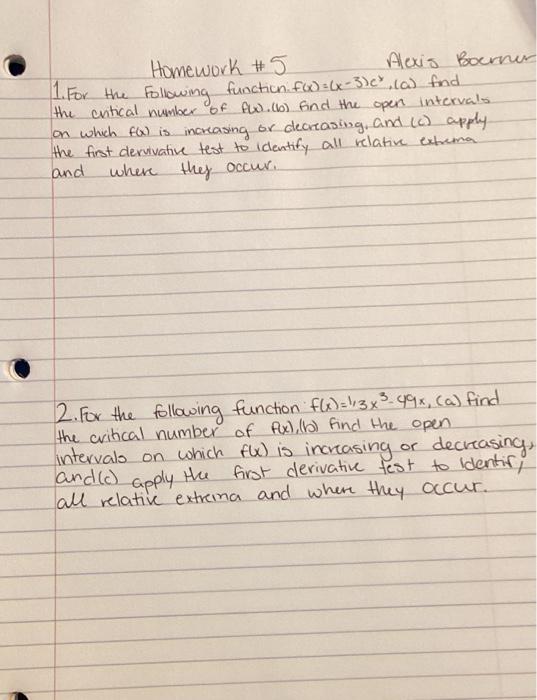 Homework #5 Alexis Boerner
1. For the following function: f(x)=(x-3)eˣ, (a) find
the critical number of f(x). (b) find the open intervals
on which f(x) is increasing or decreasing, and (c) apply
the first dervivative test to identify all relative extrema
and where they occur.
2. For the following function f(x)=1/3x³-49x, (a) find
the critical number of f(x), (b) find the open
intervals on which f(x) is increasing or decreasing,
and (c) apply the first derivative test to identify
all relative extrema and where they occur.